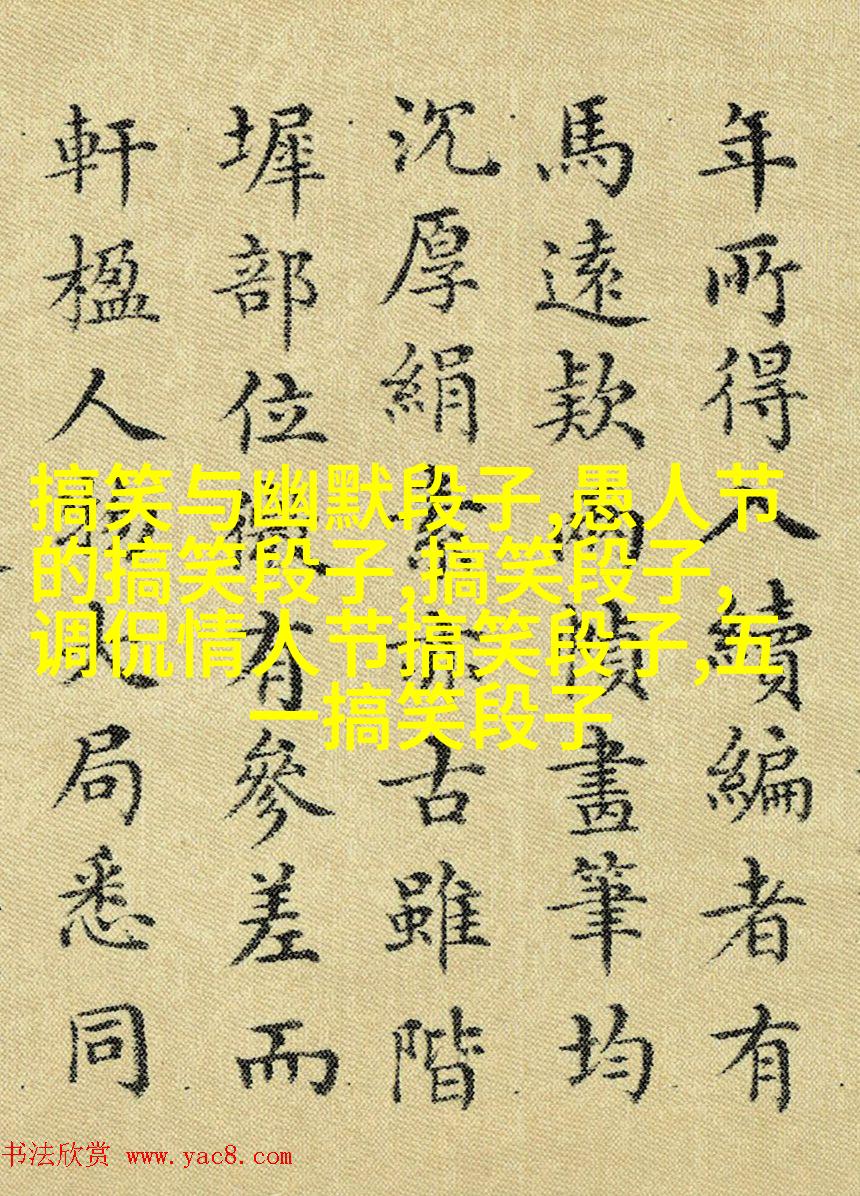 年所得入續編者有
馬遠欵畫筆均
沉厚絹素亦古雖階
墀部位微有參差而
軒楹人物大局悉同
搞笑与幽默段子,愚人节
的搞笑段子,搞笑段子,
调侃情人节搞笑段子,五
一搞笑段子
书法欣赏 www.yac8.com